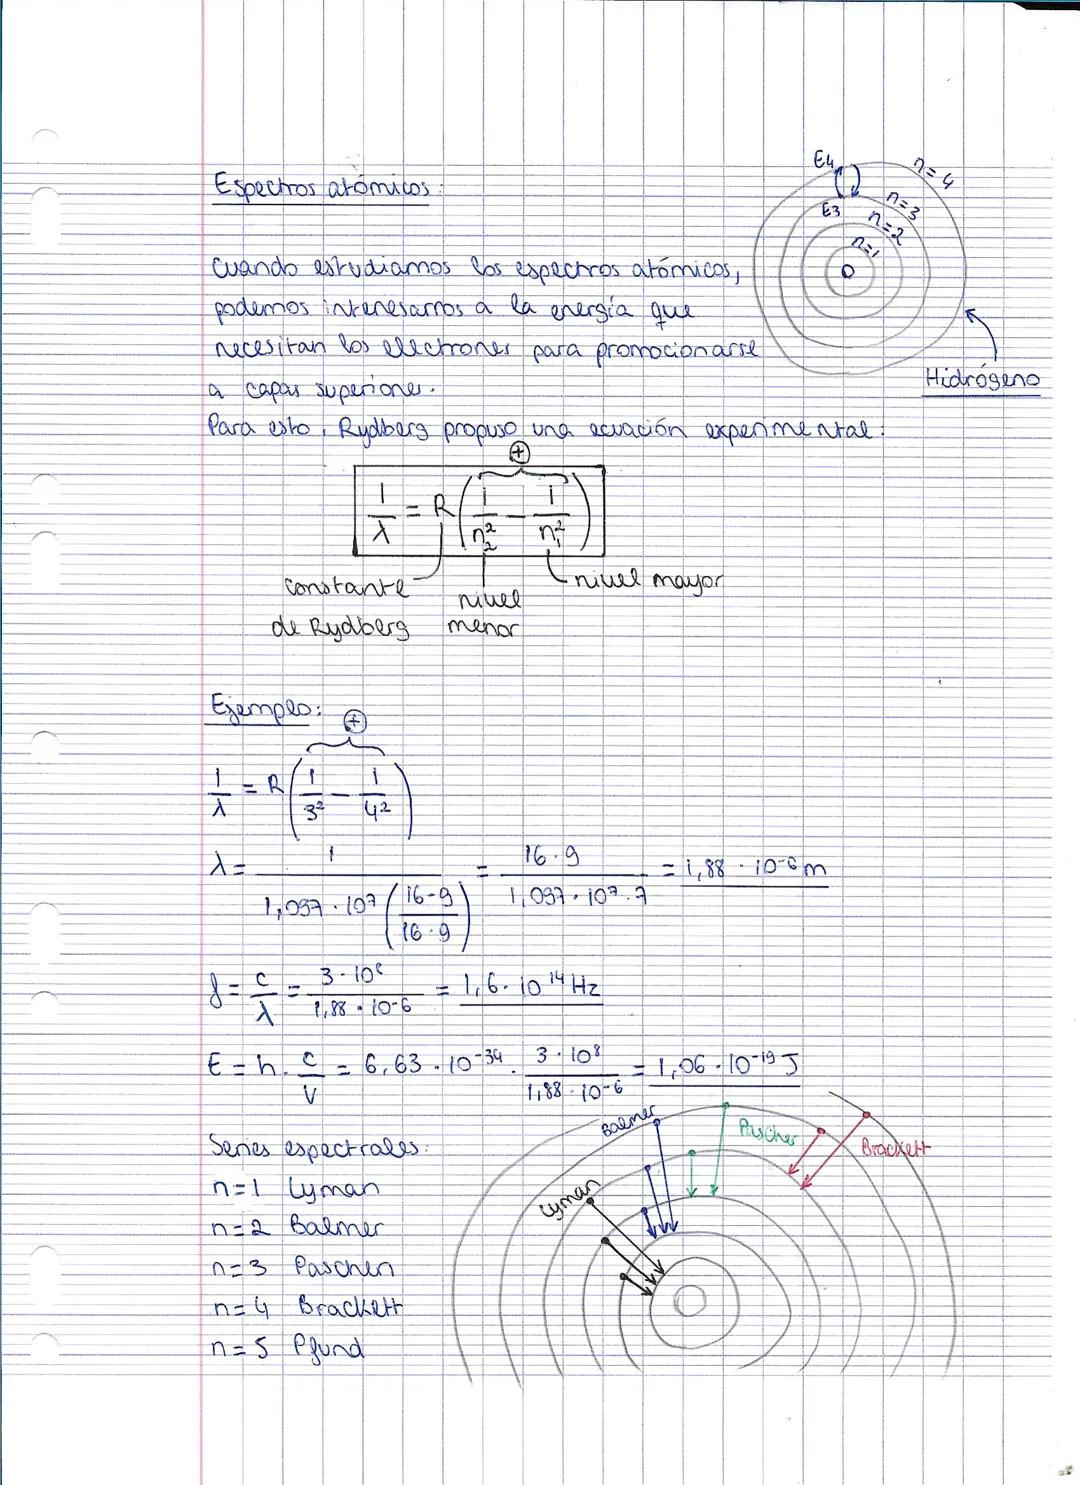 Espectros atómicos:
E4
n=4
n=3
E3
n=2
n=1
Cuando estudiamos los espectros atómicos,
podemos interesarnos a la energía que
necesitan los electrones para promocionarse
a capas superiores.
Hidrógeno
Para esto, Rydberg propuso una ecuación experimental:
+
1/λ = R (1/n₂² - 1/n₁²)
constante de Rydberg
nivel menor
nivel mayor
Ejemplo:
+
1/λ = R (1/3² - 1/4²)
λ = 1/(1,097 · 10⁷ ((16-9)/(16·9))) = (16·9)/(1,097·10⁷·7) = 1,88 · 10⁻⁶ m
f = c/λ = (3·10⁸)/(1,88·10⁻⁶) = 1,6·10¹⁴ Hz
E = h · c/V = 6,63·10⁻³⁴ · (3·10⁸)/(1,88·10⁻⁶) = 1,06·10⁻¹⁹ J
Series espectrales:
n=1 Lyman
n=2 Balmer
n=3 Paschen
n=4 Brackett
n=5 Pfund
Balmer
Paschen
Brackett
Lyman